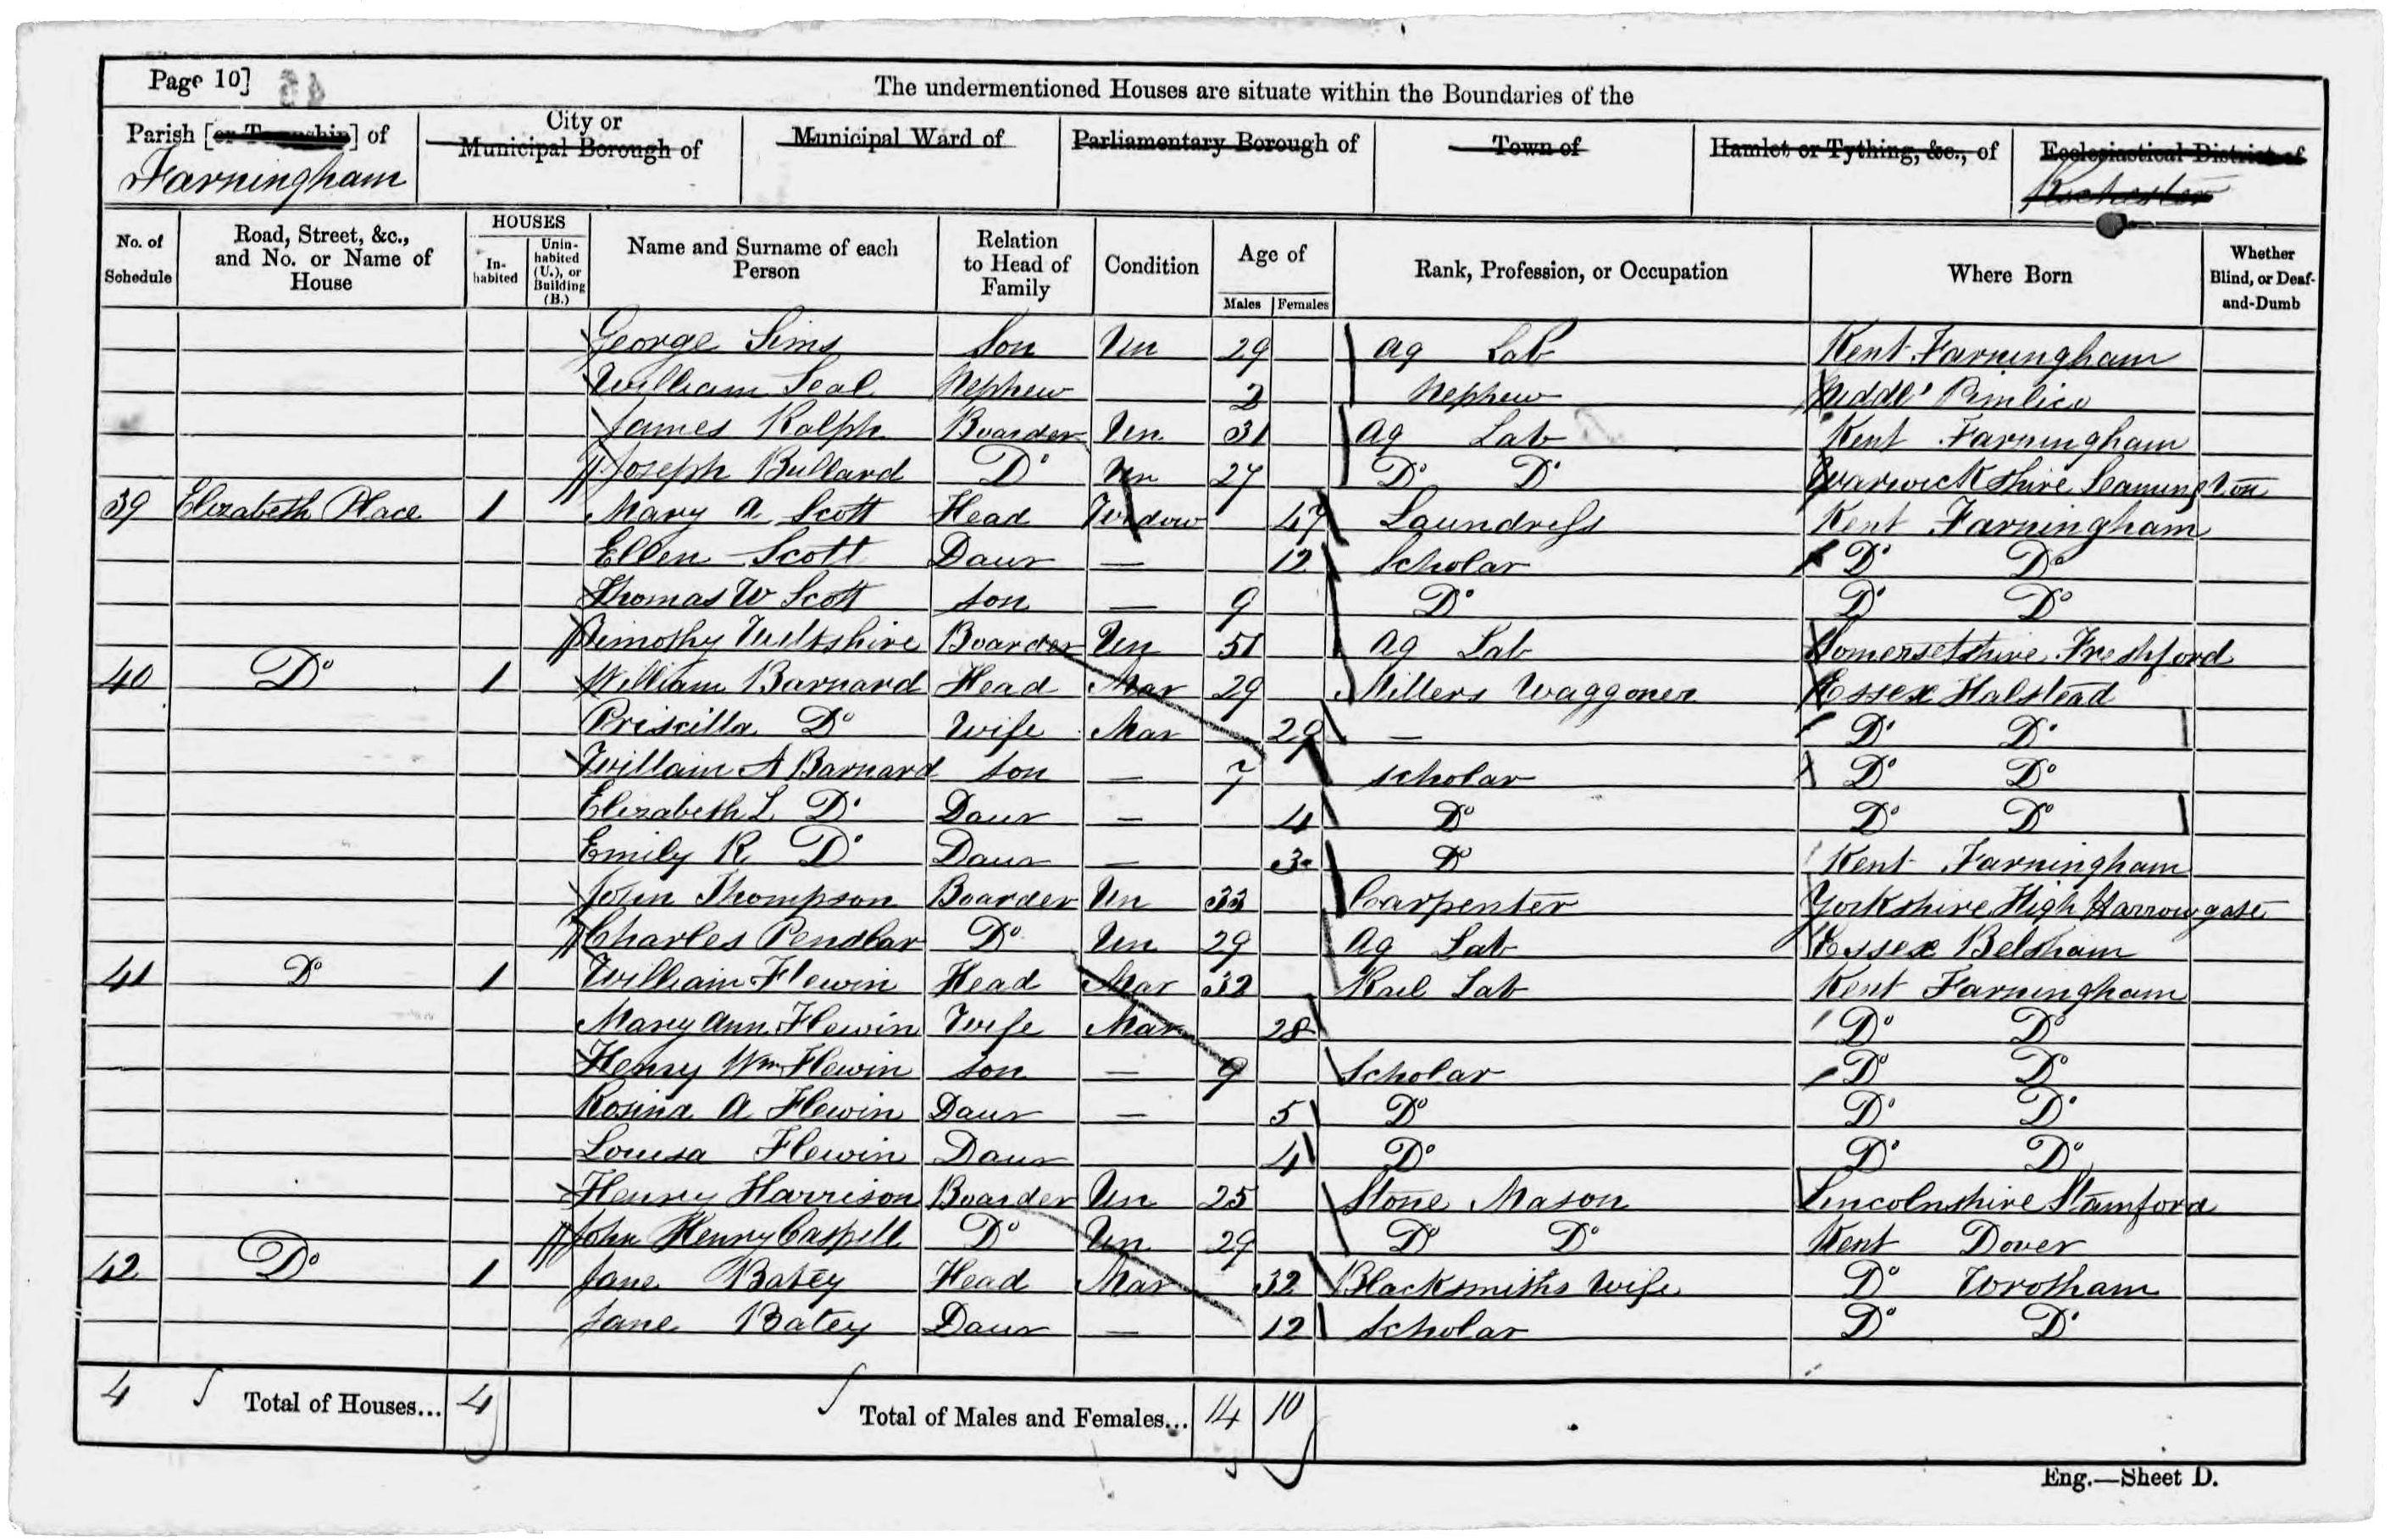 Page 10]
The undermentioned Houses are situate within the Boundaries of the
Parish [or Township] of
City or Municipal Borough of
Municipal Ward of
Parliamentary Borough of
Town of
Hamlet or Tything, &c., of
Ecclesiastical District of
Farningham
Rochester
No. of Schedule
Road, Street, &c., and No. or Name of House
HOUSES
In-habited
Unin-habited (U.), or Building (B.)
Name and Surname of each Person
Relation to Head of Family
Condition
Age of
Males
Females
Rank, Profession, or Occupation
Where Born
Whether Blind, or Deaf-and-Dumb
George Sims Son Un 29 Ag Lab Kent Farningham
William Seal Nephew 2 Nephew Middx Pimlico
James Ralph Boarder Un 31 Ag Lab Kent Farningham
Joseph Bullard Do Un 27 Do Do Warwickshire Leamington
39 Elizabeth Place 1 Mary A Scott Head Widow 47 Laundress Kent Farningham
Ellen Scott Daur — 12 Scholar Do Do
Thomas W Scott Son — 9 Do Do Do
Timothy Wiltshire Boarder Un 51 Ag Lab Somersetshire Freshford
40 Do 1 William Barnard Head Mar 29 Millers Waggoner Essex Halstead
Priscilla Do Wife Mar 29 — Do Do
Willaim A Barnard Son — 7 Scholar Do Do
Elizabeth L Do Daur — 4 Do Do Do
Emily R Do Daur — 3 Do Kent Farningham
John Thompson Boarder Un 33 Carpenter Yorkshire High Harrowgate
Charles Pendlar Do Un 29 Ag Lab Essex Belsham
41 Do 1 William Flewin Head Mar 32 Rail Lab Kent Farningham
Mary Ann Flewin Wife Mar 28 Do Do
Henry Wm Flewin Son — 9 Scholar Do Do
Rosina A Flewin Daur — 5 Do Do Do
Louisa Flewin Daur 4 Do Do Do
Henry Harrison Boarder Un 25 Stone Mason Lincolnshire Stamford
John Henry Caspell Do Un 29 Do Do Kent Dover
42 Do 1 Jane Batey Head Mar 32 Blacksmiths Wife Do Wrotham
Jane Batey Daur — 12 Scholar Do Do
4 Total of Houses... 4 Total of Males and Females... 14 10
Eng.—Sheet D.